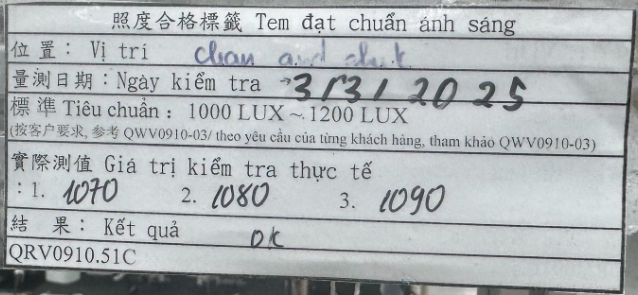 照度合格標籤 Tem đạt chuẩn ánh sáng
位置: Vị trí chan and chuk
量測日期:Ngày kiểm tra 3/3/2025
標準 Tiêu chuẩn : 1000 LUX ~ 1200 LUX
(按客戶要求, 参考 QWV0910-03/ theo yêu cầu của từng khách hàng, tham khảo QWV0910-03)
實際測值 Giá trị kiểm tra thực tế
: 1. 1070 2. 1080 3. 1090
結 果: Kết quả OK
QRV0910.51C